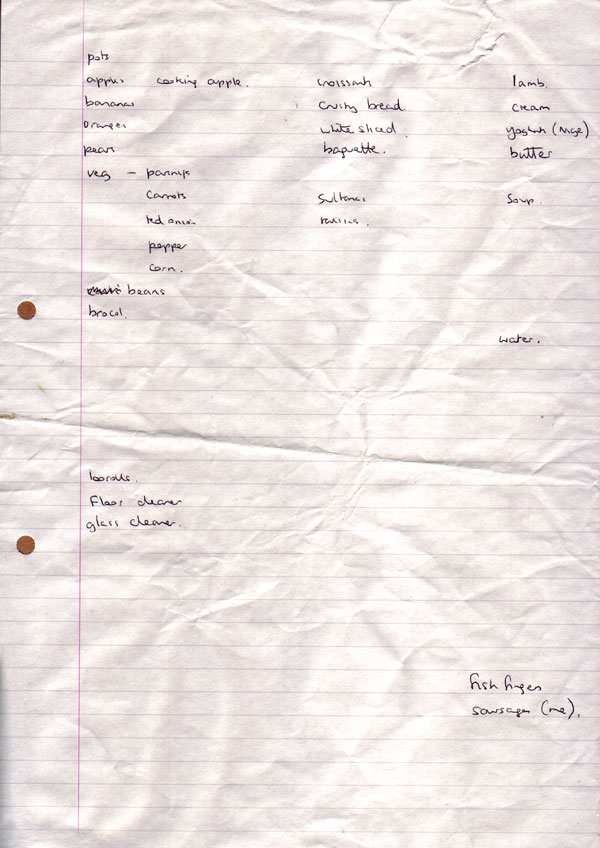 pots
apples cooking apple. croissants lamb.
bananas crusty bread. cream
oranges white sliced. yoghurt (Nige)
pears baguette. butter
veg – parsnips
carrots sultanas soup.
red onion raisins.
pepper
corn.
beans
brocol.
water.
loorolls.
Floor cleaner
glass cleaner.
fish fingers
sausages (me).